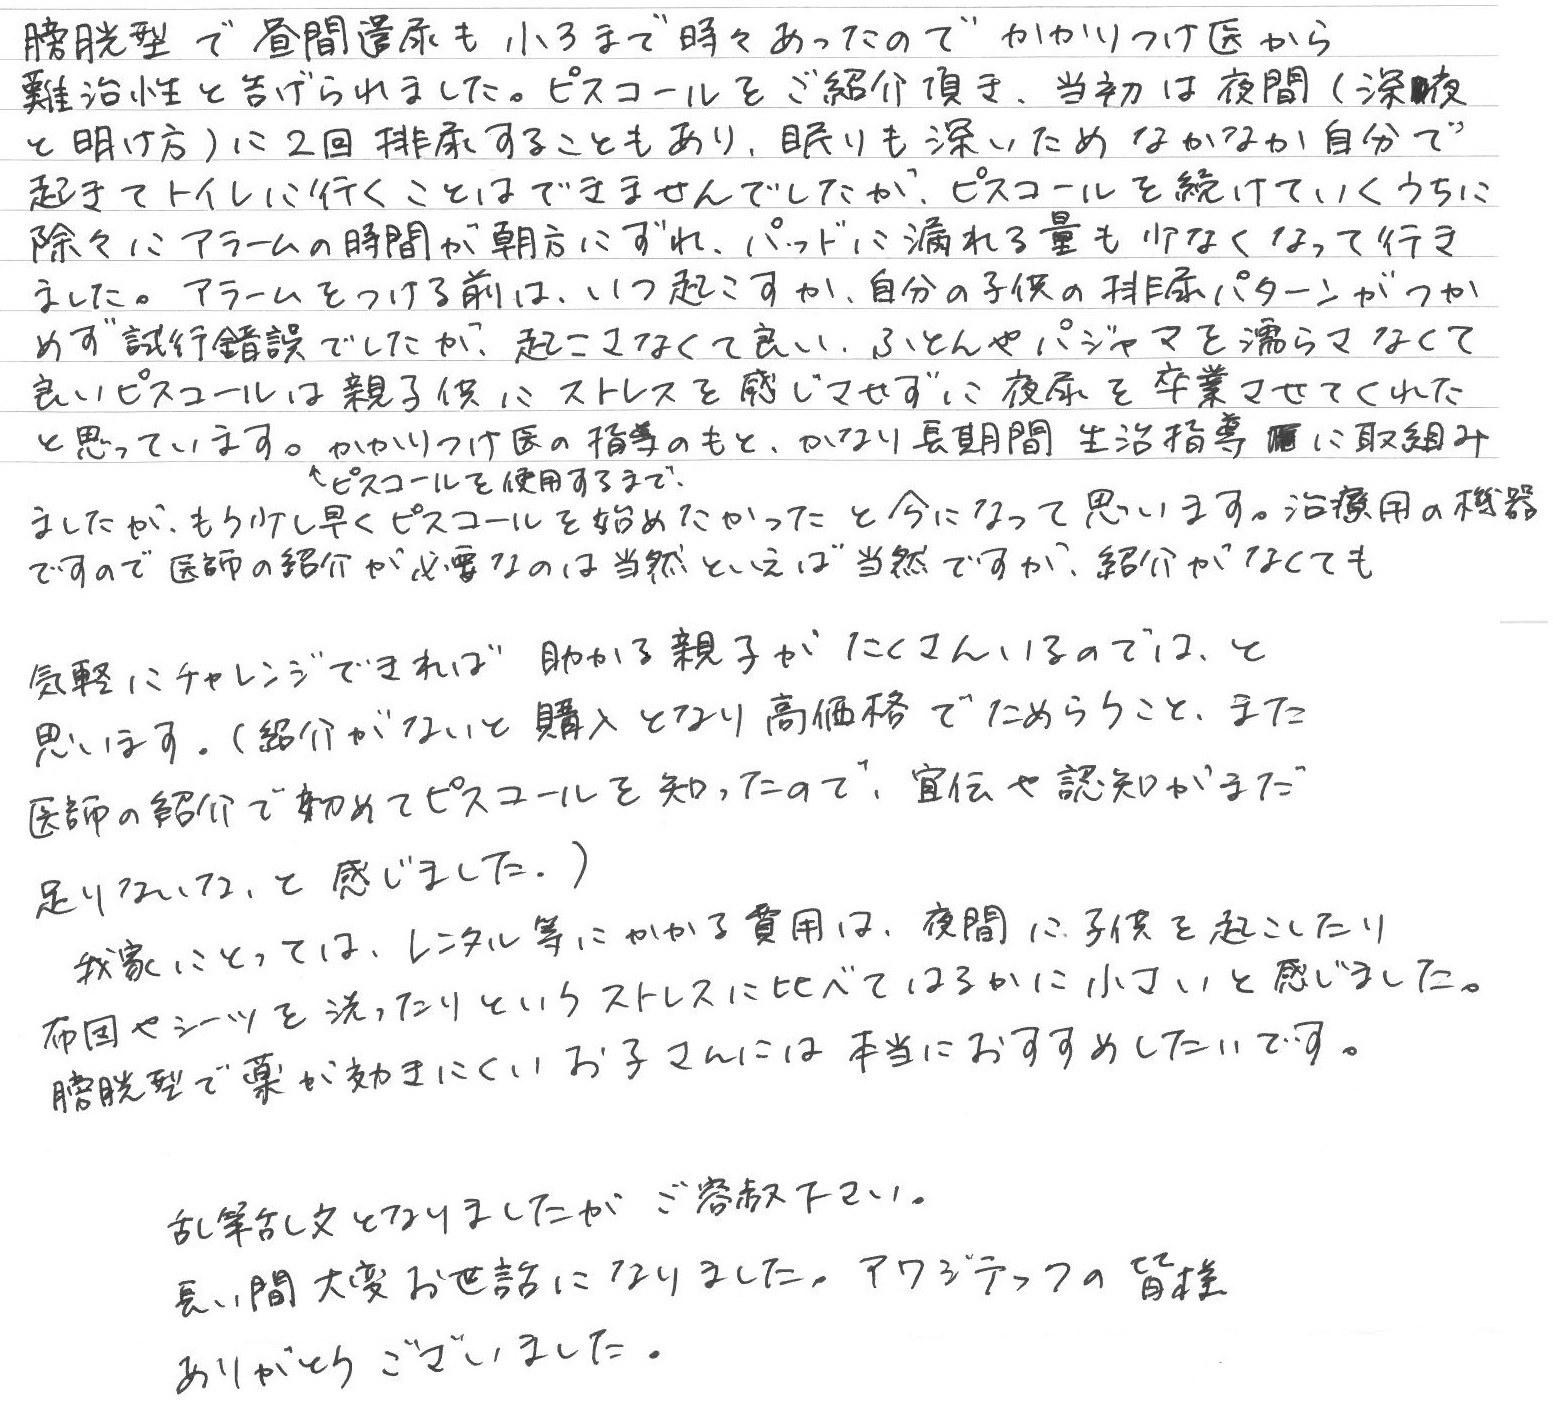 膀胱型で昼間遺尿も小3まで時々あったのでかかりつけ医から
難治性と告げられました。ピスコールをご紹介頂き、当初は夜間(深夜
と明け方)に2回排尿することもあり、眠りも深いためなかなか自分で
起きてトイレに行くことはできませんでしたが、ピスコールを続けていくうちに
除々にアラームの時間が朝方にずれ、パッドに漏れる量も少なくなって行き
ました。アラームをつける前は、いつ起こすか、自分の子供の排尿パターンがつか
めず試行錯誤でしたが、起こさなくて良い、ふとんやパジャマを濡らさなくて
良いピスコールは親子供にストレスを感じさせずに夜尿を卒業させてくれた
と思っています。かかりつけ医の指導のもと、かなり長期間生治指導に取組み
↑ピスコールを使用するまで、
ましたが、もう少し早くピスコールを始めたかったと今になって思います。治療用の機器
ですので医師の紹介が必要なのは当然といえば当然ですが、紹介がなくても
気軽にチャレンジできれば助かる親子がたくさんいるのでは、と
思います。(紹介がないと購入となり高価格でためらうこと、また
医師の紹介で初めてピスコールを知ったので、宣伝や認知がまだ
足りないな、と感じました。)
我家にとっては、レンタル等にかかる費用は、夜間に子供を起こしたり
布団やシーツを洗ったりというストレスに比べてはるかに小さいと感じました。
膀胱型で薬が効きにくいお子さんには本当におすすめしたいです。
乱筆乱文となりましたがご容赦下さい。
長い間大変お世話になりました。アワジテックの皆様
ありがとうございました。